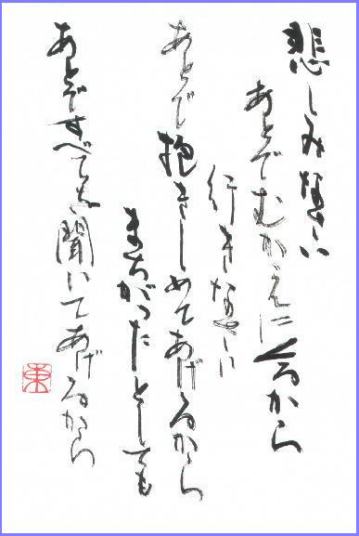 悲しみなさい
あとでむかえにくるから
行きなさい
あとで抱きしめてあげるから
まちがったとしても
あとですべてを聞いてあげるから
東